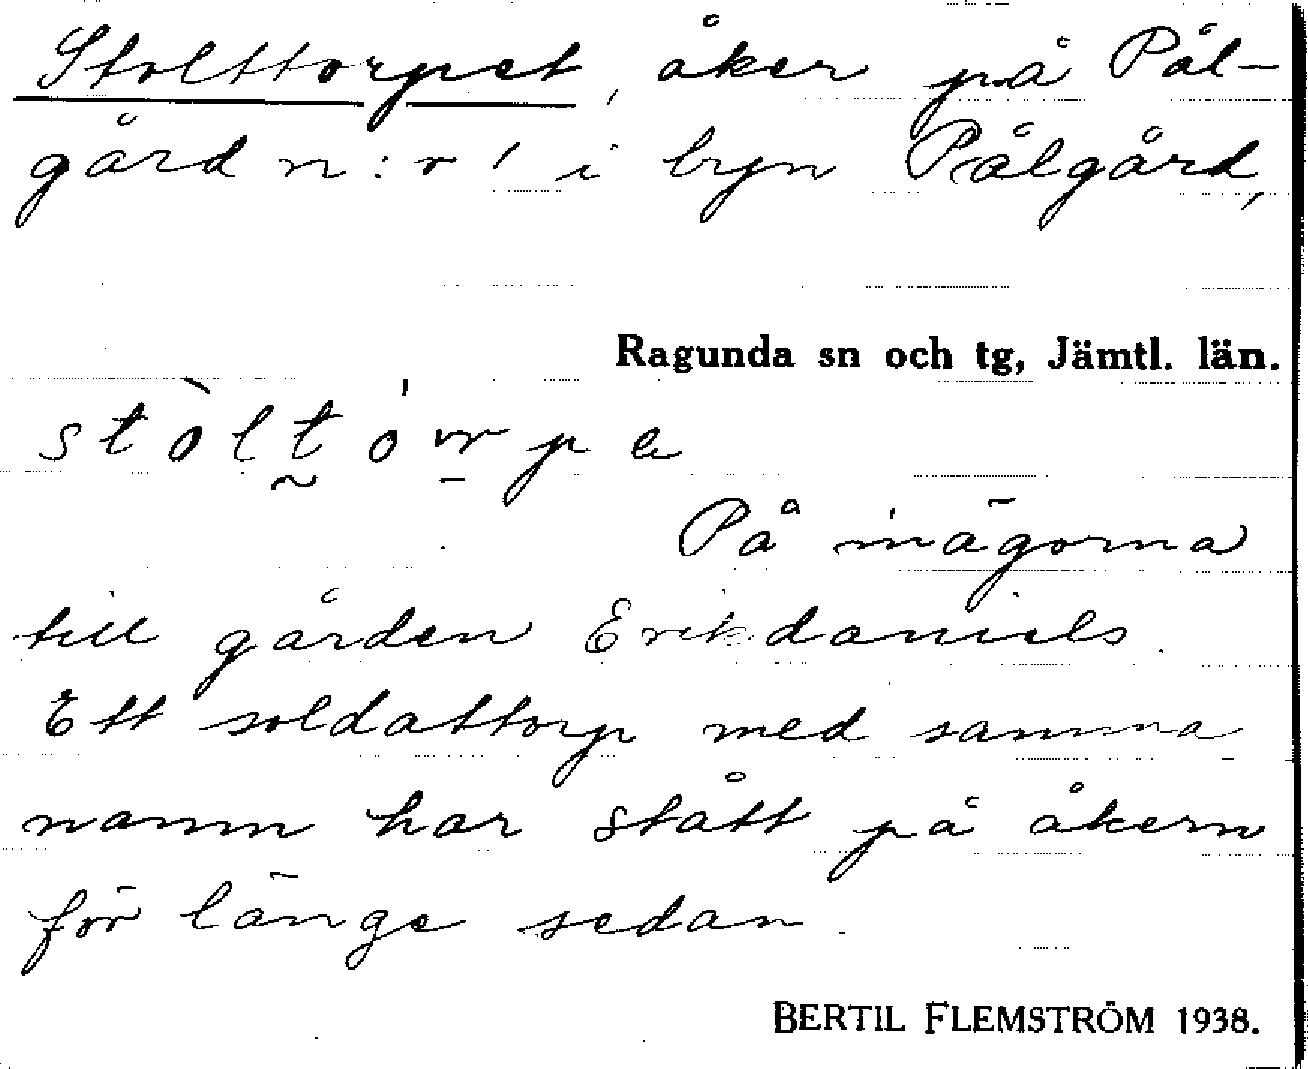 Stolttorpet, åker på Pål-
gård n:r 1 i byn Pålgård,
Ragunda sn och tg, Jämtl. län.
På inägorna
till gården Erikdaniels.
Ett soldattorp med samma
namn har stått på åkern
för länge sedan.
BERTIL FLEMSTRÖM 1938.